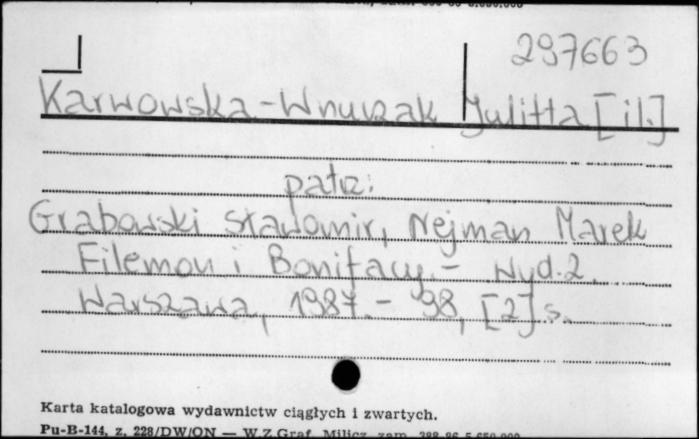 297663
Karwowska-Wnuczak Julitta [il.]
patrz:
Grabowski Sławomir, Nejman Marek
Filemon i Bonifacy. - Wyd. 2.
Warszawa, 1987. - 98, [2] s.
Karta katalogowa wydawnictw ciągłych i zwartych.
Pu-B-144, z. 228/DW/ON — W.Z.Graf. Milicz zam.